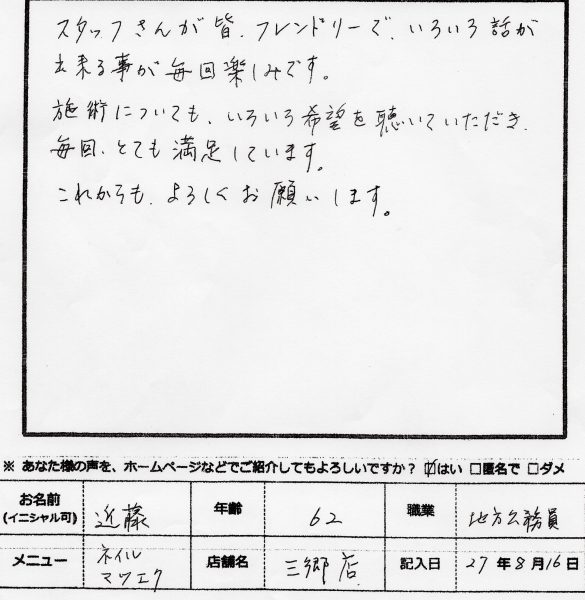 スタッフさんが皆、フレンドリーで、いろいろ話が
出来る事が毎回楽しみです。
施術についても、いろいろ希望を聴いていただき、
毎回、とても満足しています。
これからも、よろしくお願いします。
※ あなた様の声を、ホームページなどでご紹介してもよろしいですか？ ☑はい □匿名で □ダメ
お名前 (イニシャル可) 近藤 年齢 62 職業 地方公務員
メニュー ネイル マツエク 店舗名 三郷店 記入日 27年8月16日